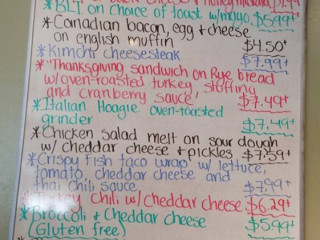 & Honey mustard
*BLT on choice of toast w/mayo $5.99+
*Canadian bacon, egg & cheese
on english muffin $4.50+
*Kimchi cheesesteak $7.99+
*"Thanksgiving sandwich on Rye bread
w/oven-roasted turkey, stuffing
and cranberry sauce $7.49+
*Italian Hoagie oven-toasted
grinder $7.49+
*Chicken salad melt on sour dough
w/ cheddar cheese & pickles $7.59+
*Crispy fish taco wrap w/ lettuce,
tomato, cheddar cheese and
thai chili sauce $7.99+
chili w/cheddar cheese $6.29+
*Broccoli & Cheddar cheese $5.99+
(Gluten free)